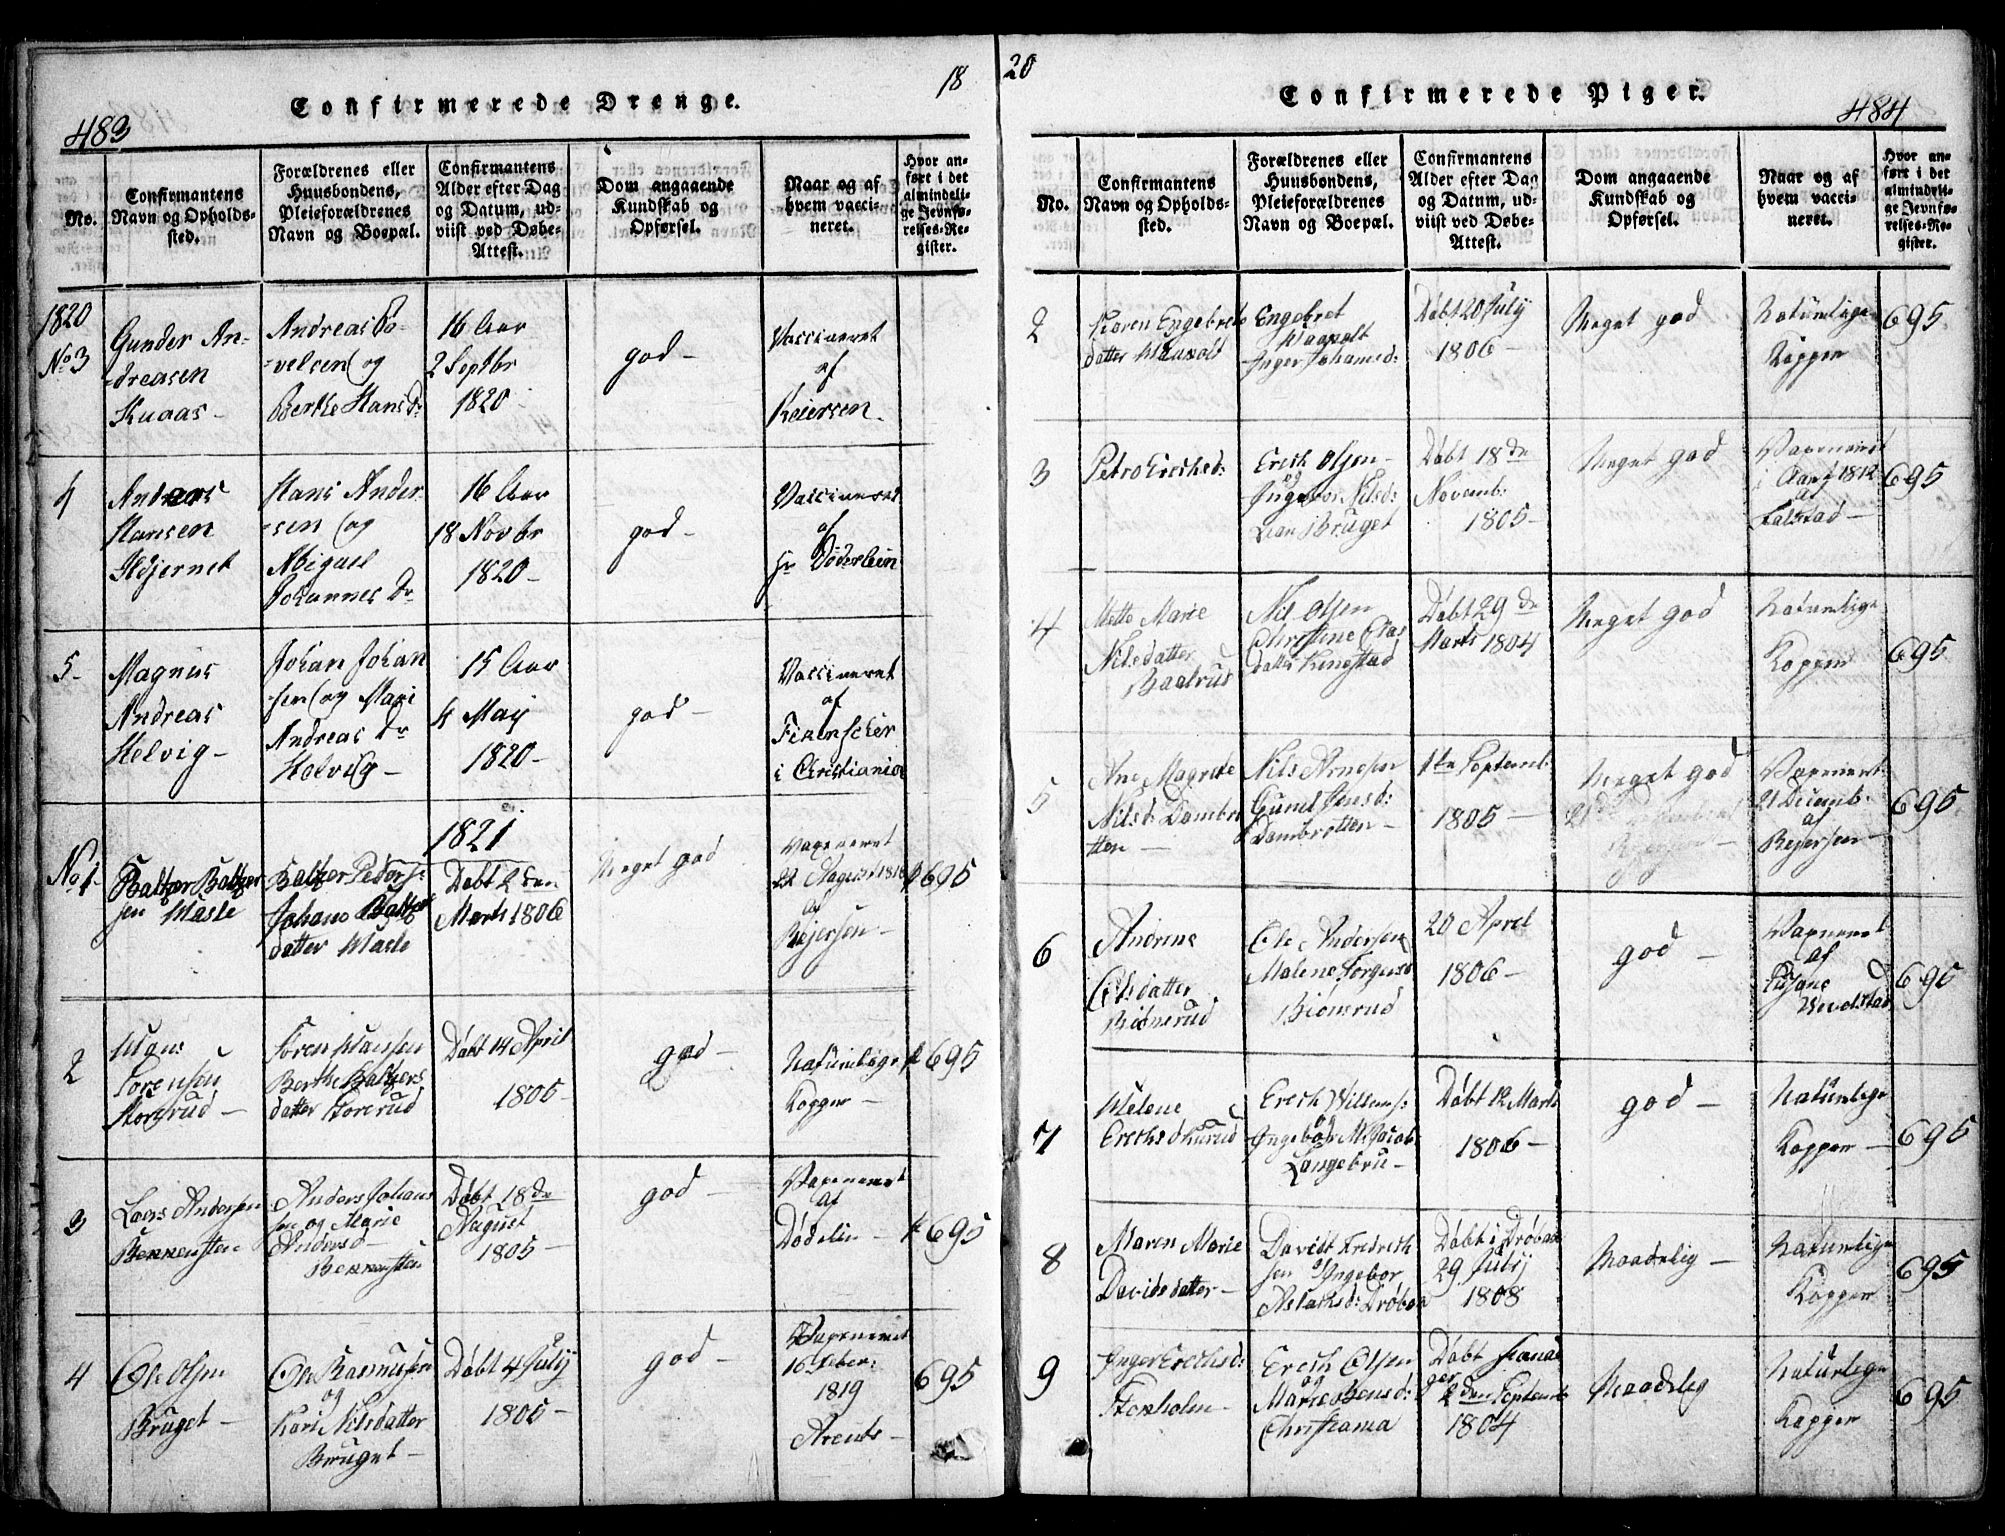 18
Confirmerede Drenge.
483
No.
Confirmantens
Navn og Opholds-
sted.
Forældrenes eller
Huusbondens,
Pleieforældrenes
Navn og Boepæl.
Confirmantens
Alder efter Dag
og Datum, ud-
viist ved Døbe-
Attest.
Dom angaaende
Kundskab og
Opførsel.
Naar og af
hvem vacci-
neret.
Hvor an-
ført i det
almindeli-
ge Jevnfø-
relses-Re-
gister.
1820
No 3
Gunder An-
dreasen
Knaas
Andreas Po-
velsen og
Berthe Hans D:
16 Aar
2 Septbr
1820
god
Vaccineret
af
Reiersen
4
Andreas
Hansen
Hans Ander-
sen og
Abigael
Johannes Dr
16 Aar
18 Novbr
1820
god
Vaccineret
af
Hr Döderlein
5
Magnus
Andreas
Helvig
Johan Johan
sen og Mari
Andreas Dr
Helvig
15 Aar
4 Maij
1820
god
Vaccineret
af
i Christiania
1821
No 1
Baltzer Baltzer
sen
Baltzer Peders:
Johane Baltzer
datter
Døbt 2 den
Marts 1806
Meget god
af
Rejersen
695
2
Hans
Sorensen
Storerud
Soren Hansen
Berthe Baltzers
datter Storerud
Døbt 14 April
1805
god
Naturlige
Kopper
695
3
Laers Andersen
Anders Johans
sen og Marie
Andersd
Døbt 18 de
August
1805
god
af
Dødelin
695
4
Ole Olsen
Bruget
Ole Rasmusen
og
Kari Nilsdatter
Bruget
Døbt 4 July
1805
god
16 Feber:
1819
Arents
695
20
Confirmerede Piger.
484
No.
Confirmantens
Navn og Opholds-
sted.
Forældrenes eller
Huusbondens,
Pleieforældrenes
Navn og Boepæl.
Confirmantens
Alder efter Dag
og Datum, ud-
viist ved Døbe-
Attest.
Dom angaaende
Kundskab og
Opførsel.
Naar og af
hvem vacci-
neret.
Hvor an-
ført i det
almindeli-
ge Jevnfø-
relses-Re-
gister.
2
Karen Engebrets
datter
Engebret
Inger Johansd:
Døbt 20 July
1806
Meget god
Naturlige
Kopper
695
3
Petro Erichsd:
Erich Olsen
og
Ingebor Nilsd:
Bruget
Døbt 18 de
Novemb:
1805
Meget god
i Aar 1812
af
Falstad
695
4
Mette Marie
Nilsdatter
Nil Olsen
Christine
datter
Døbt 29 de
Marts 1804
Meget god
Naturlige
Kopper
695
5
Ane Magrete
Nilsd: Dambro
tten
Nils Arnesen
Gunil Jensd:
Dambrotten
1te Septemb
1805
Meget god
21 Decemb:
af
Rejersen
695
6
Andrine
Olsdatter
Biønerud
Ole Andersen
Malene Torgusd
Biönsrud
20 April
1806
god
af
695
7
Helene
Erichsd
Erich Willums:
og
Langebru
Døbt 12 Marts
1806
god
Naturlige
Kopper
695
8
Maren Marie
Davidsdatter
David Fredrich
sen og Ingebor
Aslachsd: Drøbak
Døbt i Drøbak
29 July
1808
Maadelig
Naturlige
Kopper
695
9
Inger Erichsd:
Storholm
Erich Olsen
og
Marie Jensd:
Christiania
Døbt
2 den Septemb
1804
Maadelig
Naturlige
Kopper
695